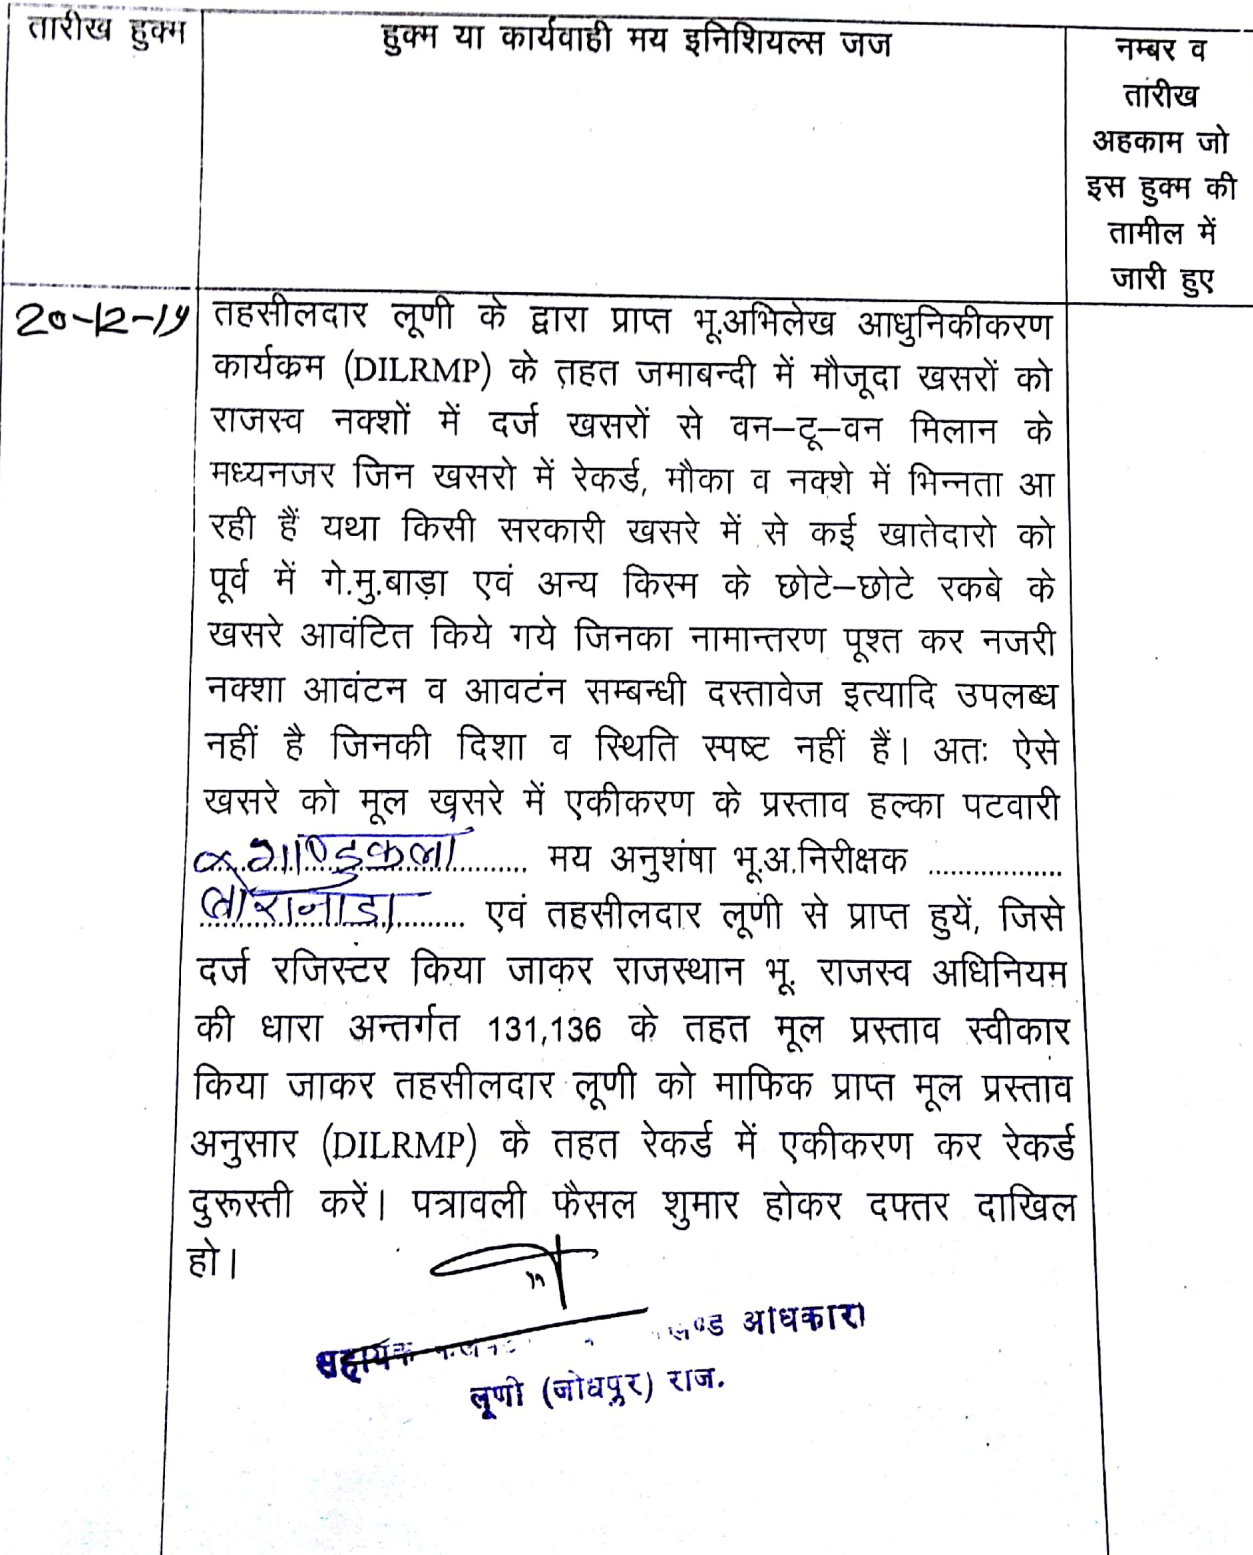 तारीख हुक्म
हुक्म या कार्यवाही मय इनिशियल्स जज
नम्बर व
तारीख
अहकाम जो
इस हुक्म की
तामील में
जारी हुए
20-12-19
तहसीलदार लूणी के द्वारा प्राप्त भू.अभिलेख आधुनिकीकरण
कार्यक्रम (DILRMP) के तहत जमाबन्दी में मौजूदा खसरों को
राजस्व नक्शों में दर्ज खसरों से वन–टू–वन मिलान के
मध्यनजर जिन खसरो में रेकर्ड, मौका व नक्शे में भिन्नता आ
रही हैं यथा किसी सरकारी खसरे में से कई खातेदारो को
पूर्व में गे.मु.बाड़ा एवं अन्य किस्म के छोटे–छोटे रकबे के
खसरे आवंटित किये गये जिनका नामान्तरण पूश्त कर नजरी
नक्शा आवंटन व आवटंन सम्बन्धी दस्तावेज इत्यादि उपलब्ध
नहीं है जिनकी दिशा व स्थिति स्पष्ट नहीं हैं। अतः ऐसे
खसरे को मूल खसरे में एकीकरण के प्रस्ताव हल्का पटवारी
................ मय अनुशंषा भू.अ.निरीक्षक ..................
बोरानाडा ........ एवं तहसीलदार लूणी से प्राप्त हुयें, जिसे
दर्ज रजिस्टर किया जाकर राजस्थान भू. राजस्व अधिनियम
की धारा अन्तर्गत 131,136 के तहत मूल प्रस्ताव स्वीकार
किया जाकर तहसीलदार लूणी को माफिक प्राप्त मूल प्रस्ताव
अनुसार (DILRMP) के तहत रेकर्ड में एकीकरण कर रेकर्ड
दुरूस्ती करें। पत्रावली फैसल शुमार होकर दफ्तर दाखिल
हो।
सहायक अधिकारी
लूणी (जोधपुर) राज.